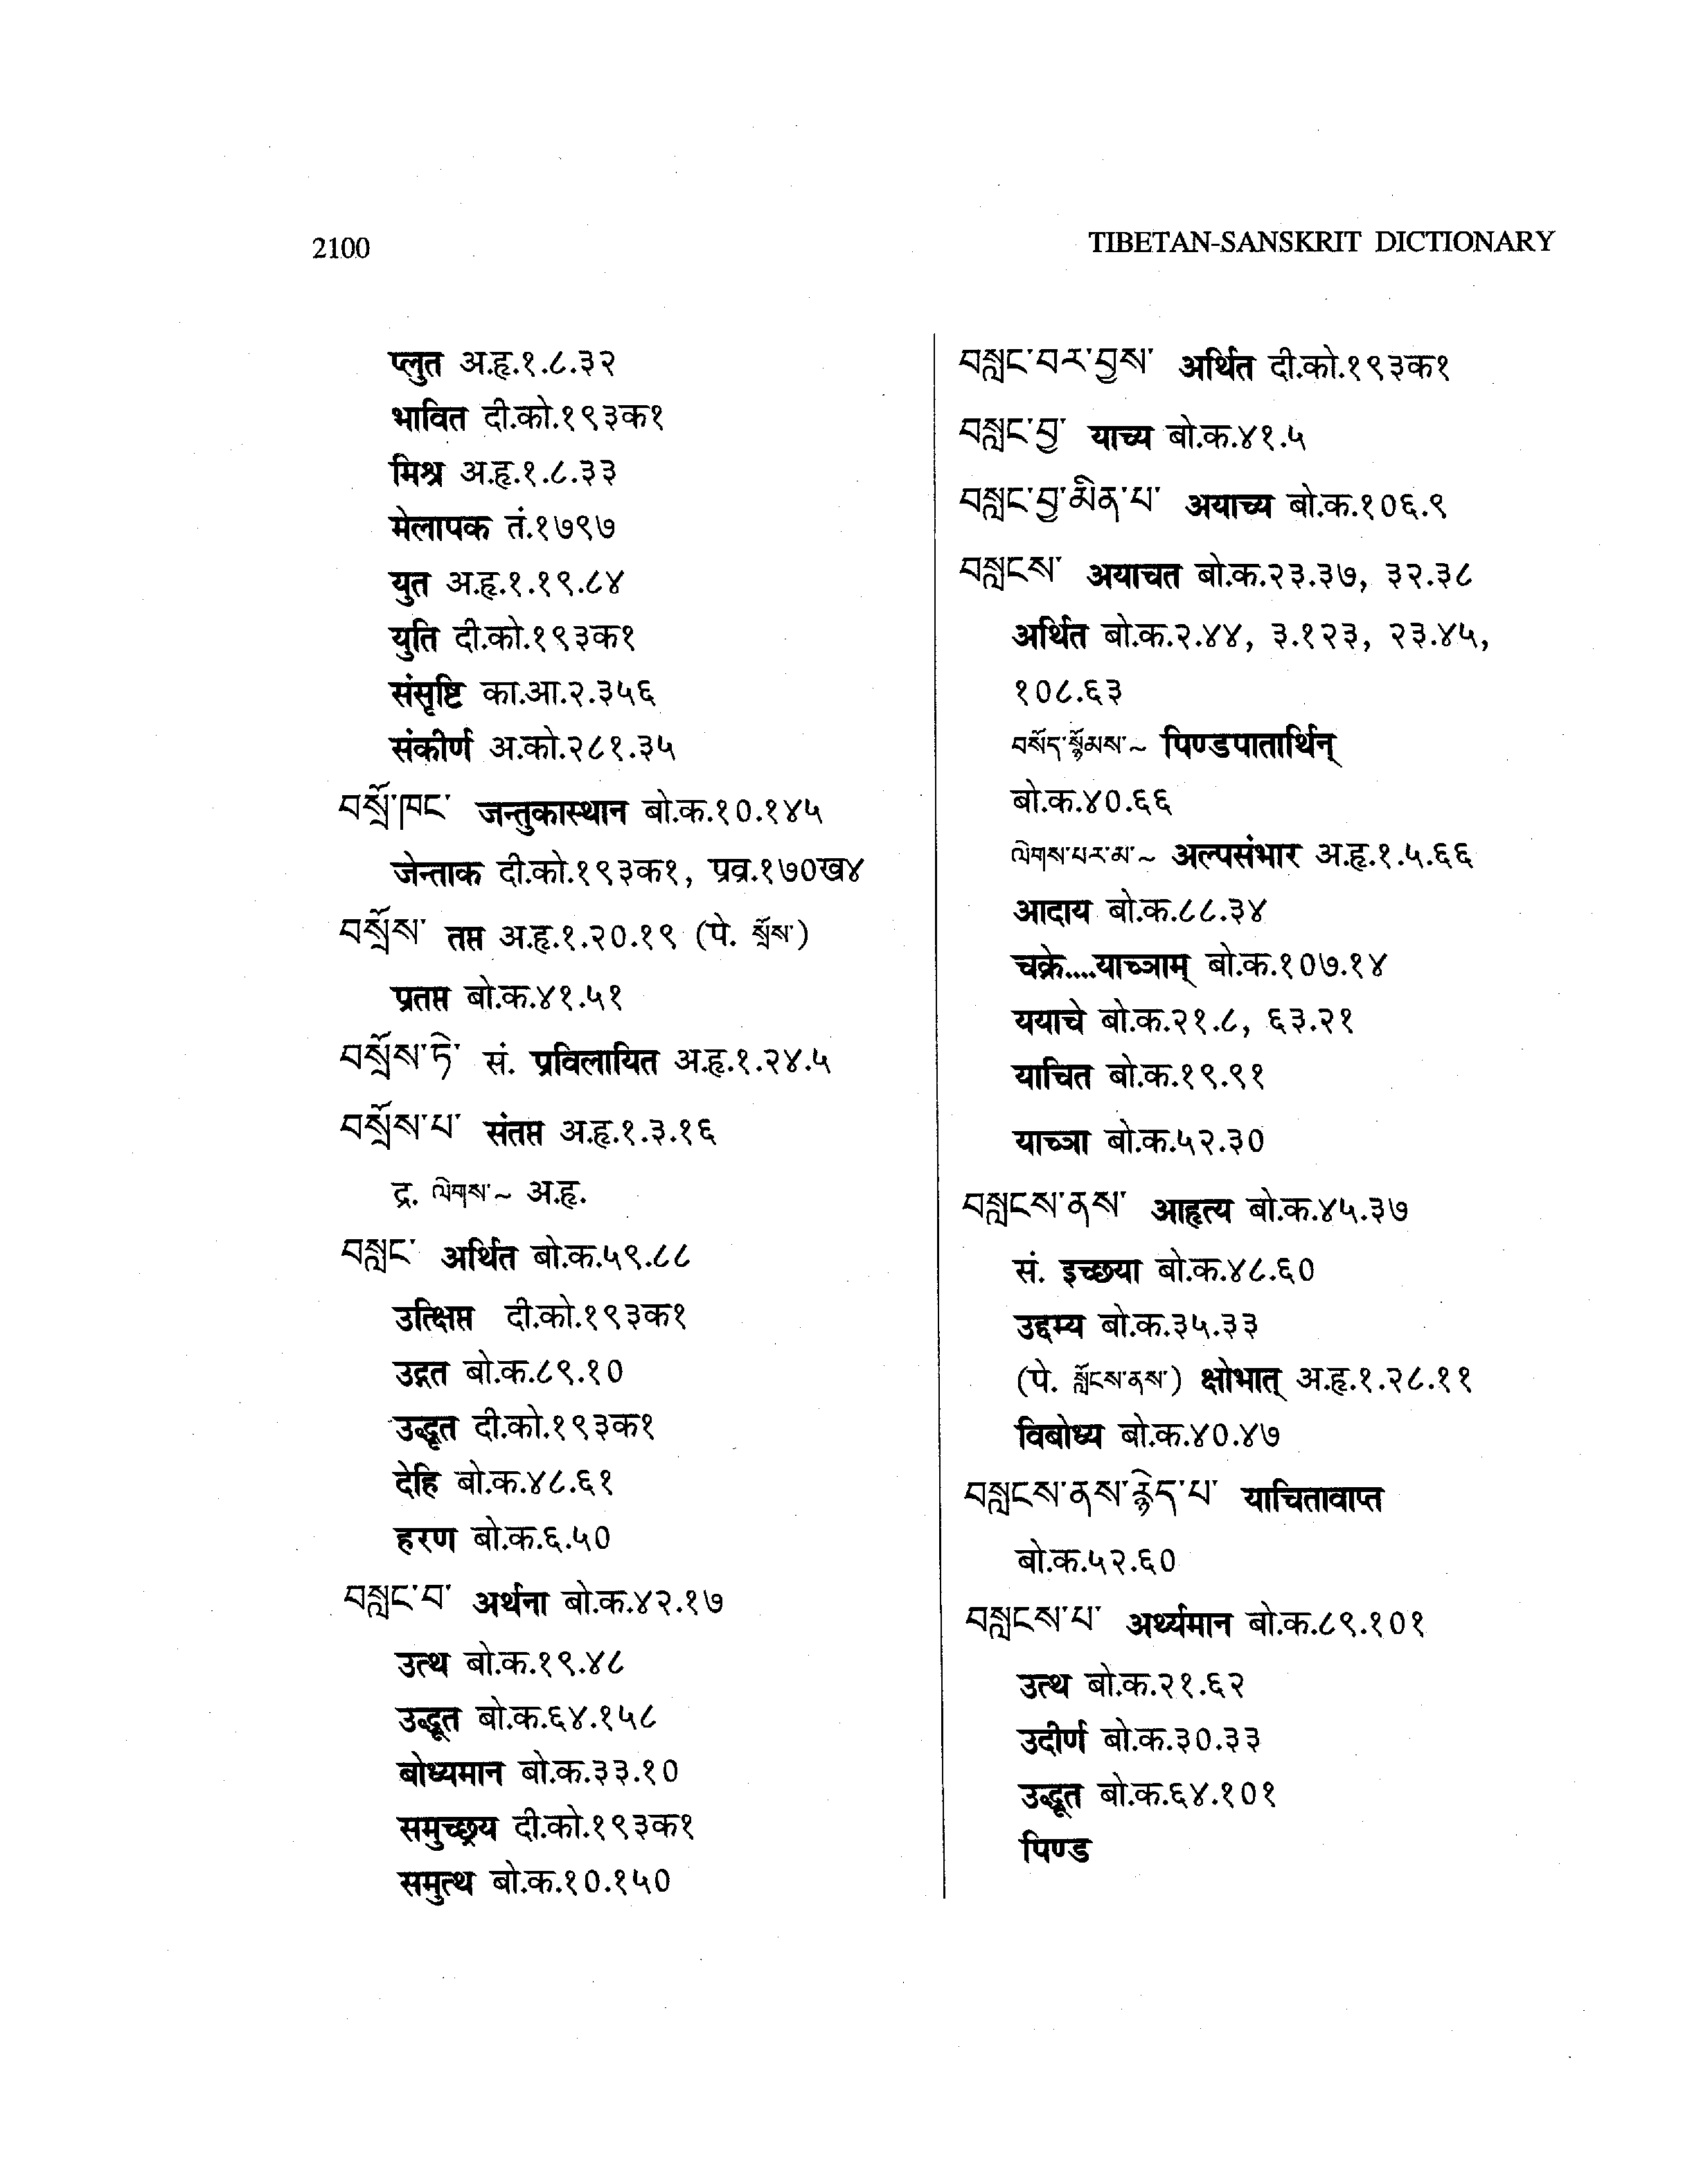 2100
TIBETAN-SANSKRIT DICTIONARY
प्लुत अ.हृ.१.८.३२
भावित दी.को.१९३क१
मिश्र अ.हृ.१.८.३३
मेलापक तं.१७९७
युत अ.हृ.१.१९.८४
युति दी.को.१९३क१
संसृष्टि का.आ.२.३५६
संकीर्ण अ.को.२८१.३५
བསྲོ་ཁང་ जन्तुकास्थान बो.क.१०.१४५
जेन्ताक दी.को.१९३क१, प्रव्र.१७०ख४
བསྲོས་ तप्त अ.हृ.१.२०.१९ (पे. སྲོས་)
प्रतप्त बो.क.४१.५१
བསྲོས་ཏེ་ सं. प्रविलायित अ.हृ.१.२४.५
བསྲོས་པ་ संतप्त अ.हृ.१.३.१६
द्र. ལེགས་~ अ.हृ.
བསླང་ अर्थित बो.क.५९.८८
उत्क्षिप्त दी.को.१९३क१
उद्गत बो.क.८९.१०
उद्धृत दी.को.१९३क१
देहि बो.क.४८.६१
हरण बो.क.६.५०
བསླང་བ་ अर्थना बो.क.४२.१७
उत्थ बो.क.१९.४८
उद्धूत बो.क.६४.१५८
बोध्यमान बो.क.३३.१०
समुच्छ्रय दी.को.१९३क१
समुत्थ बो.क.१०.१५०
བསླང་བར་བྱས་ अर्थित दी.को.१९३क१
བསླང་བྱ་ याच्य बो.क.४१.५
བསླང་བྱ་མིན་པ་ अयाच्य बो.क.१०६.९
བསླངས་ अयाचत बो.क.२३.३७, ३२.३८
अर्थित बो.क.२.४४, ३.१२३, २३.४५,
१०८.६३
བསོད་སྙོམས་~ पिण्डपातार्थिन्
बो.क.४०.६६
ལེགས་པར་མ་~ अल्पसंभार अ.हृ.१.५.६६
आदाय बो.क.८८.३४
चक्रे....याच्ञाम् बो.क.१०७.१४
ययाचे बो.क.२१.८, ६३.२१
याचित बो.क.१९.९१
याच्ञा बो.क.५२.३०
བསླངས་ནས་ आहृत्य बो.क.४५.३७
सं. इच्छया बो.क.४८.६०
उद्दम्य बो.क.३५.३३
(पे. སློངས་ནས་) क्षोभात् अ.हृ.१.२८.११
विबोध्य बो.क.४०.४७
བསླངས་ནས་རྙེད་པ་ याचितावाप्त
बो.क.५२.६०
བསླངས་པ་ अर्थ्यमान बो.क.८९.१०१
उत्थ बो.क.२१.६२
उदीर्ण बो.क.३०.३३
उद्धूत बो.क.६४.१०१
पिण्ड